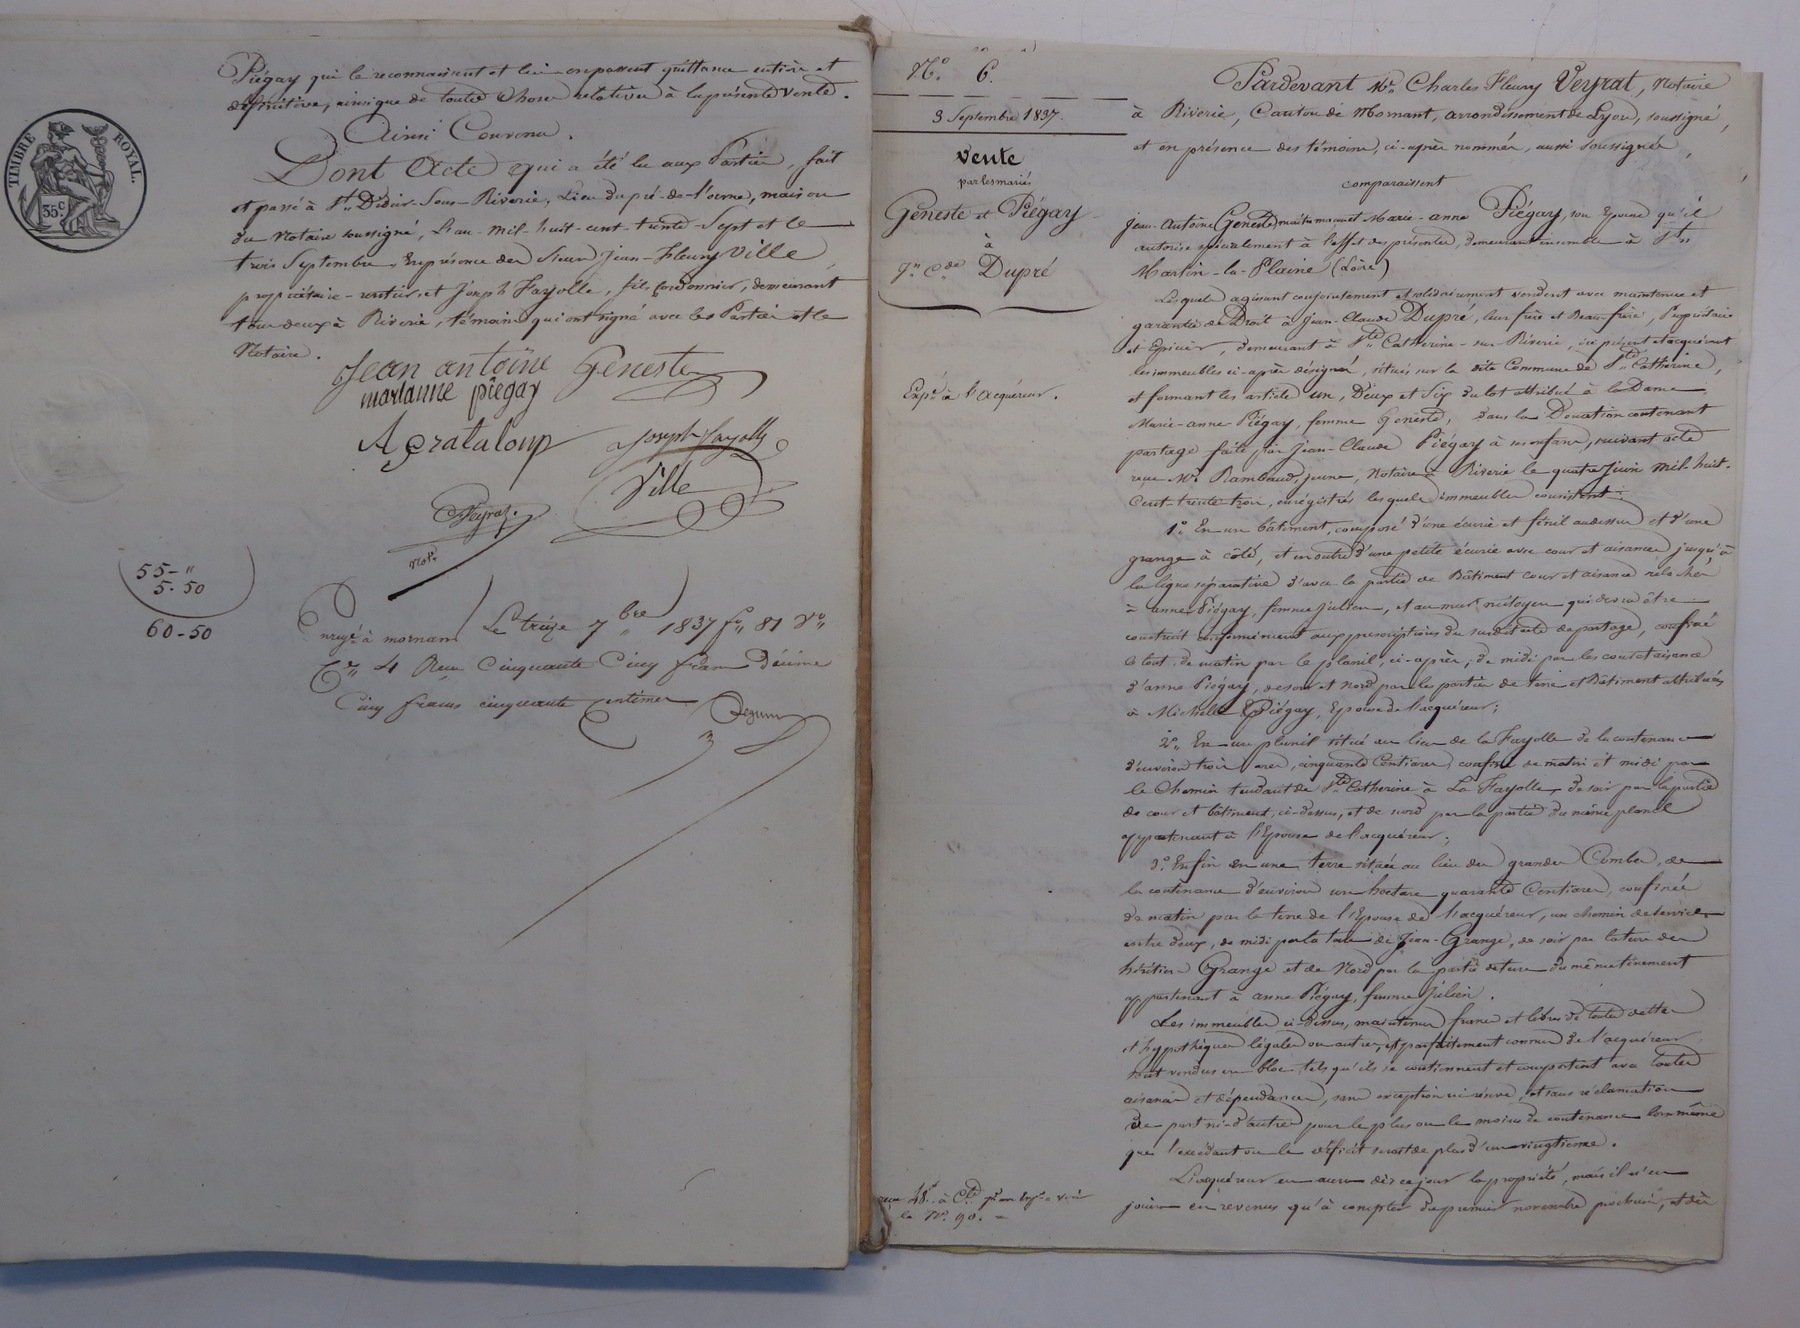 Piégay qui le reconnaissent et lui en passent quittance entière et
définitive, ainsi que de toutes choses relatives à la présente vente.
Ainsi Convenu.
Dont Acte qui a été lu aux Parties, fait
et passé à St. Didier-Sous-Riverie, Lieu du pré-de-l'orme, maison
du Notaire soussigné, L'an-mil-huit-cent-trente-Sept et le
trois Septembre, En présence des Sieurs Jean-Fleury Ville,
propriétaire-rentier, et Joseph Fayolle, fils, Cordonnier, demeurant
tous deux à Riverie, témoins qui ont signé avec les Parties et le
Notaire.
TIMBRE ROYAL.
35 c.
Jean antoine Geneste
marianne piegay
A grataloup Joseph fayolle
Ville
Veyrat.
Not.
55-"
5-50
60-50
Enregé à mornant Le treize 7bre 1837 fo 81 Vo
Ce 4 Reçu Cinquante Cinq francs Décime
Cinq francs cinquante Centimes
No. 6.
3 Septembre 1837.
Vente
par les mariés
Geneste et Piégay
à
Jn. Cde Dupré
Expn. à l'Acquéreur.
le No. 90.
Pardevant Me. Charles Fleury Veyrat, Notaire
à Riverie, Canton de Mornant, arrondissement de Lyon, soussigné,
et en présence des témoins, ci-après nommés, aussi soussignés,
comparaissent
Jean-Antoine Geneste, maître maçon et Marie-anne Piégay, son Epouse qu'il
autorise spécialement à l'effet des présentes, demeurant ensemble à St.
Martin-la-Plaine (Loire)
Lesquels agissant conjointement et solidairement vendent avec maintenue et
garantie de Droit à Jean-Claude Dupré, leur frère et Beau-frère, Propriétaire
et Epicier, demeurant à Ste. Catherine-sur-Riverie, ici présent et acquérant
les immeubles ci-après désignés, situés sur la dite Commune de Ste. Catherine,
et formant les articles un, Deux et Six du lot attribué à la Dame
Marie-anne Piégay, femme Geneste, dans la Donation contenant
partage faite par Jean-Claude Piégay à ses enfans, suivant acte
reçu Me. Rambaud, jeune, Notaire à Riverie le quatre Juin mil-huit-
Cent-trente-trois, enregistrés lesquels immeubles consistent:
1o. En un bâtiment, composé d'une écurie et fénil audessus et d'une
grange à côté, et en outre d'une petite écurie avec cour et aisances jusqu'à
la ligne séparative d'avec la partie de Bâtiment cour et aisances relachés
à anne Piégay, femme Julien, et au mur mitoyen qui devra être
construit conformément aux prescriptions du susdit acte de partage, confiné
le tout de matin par le planil, ci-après, de midi par les cour et aisances
d'anne Piégay, de soir et Nord par les parties de terre et Bâtiment attribuées
à Michelle Piégay, Epouse de l'acquéreur;
2o. En un planil situé au lieu de la Fayolle de la contenance
d'environ trois ares, cinquante Centiares, confiné de matin et midi par
le Chemin tendant de Ste. Catherine à La Fayolle, de soir par la partie
de cour et bâtiment, ci-dessus, et de nord par la partie du même planil
appartenant à l'Epouse de l'acquéreur;
3o. Enfin en une terre située au lieu des grandes Combes, de
la contenance d'environ un hectare quarante Centiares, confinée
de matin par la terre de l'Epouse de l'acquéreur, un chemin de service
entre deux, de midi par la terre de Jean-Grange, de soir par la terre des
héritiers Grange et de Nord par la partie de terre du même tènement
appartenant à anne Piégay, femme Julien.
Les immeubles ci-dessus, maintenus francs et libres de toutes dettes
et hypothèques légales ou autres, et parfaitement connus de l'acquéreur,
sont vendus en bloc tels qu'ils se contiennent et comportent avec toutes
aisances et dépendances, sans exception ni réserve, et sans réclamation
de part ni-d'autre pour le plus ou le moins de contenance lors même
que l'excédant ou le déficit serait de plus d'un vingtième.
L'acquéreur en aura dès ce jour la propriété, mais il n'en
jouira en revenus qu'à compter du premier novembre prochain, et dès